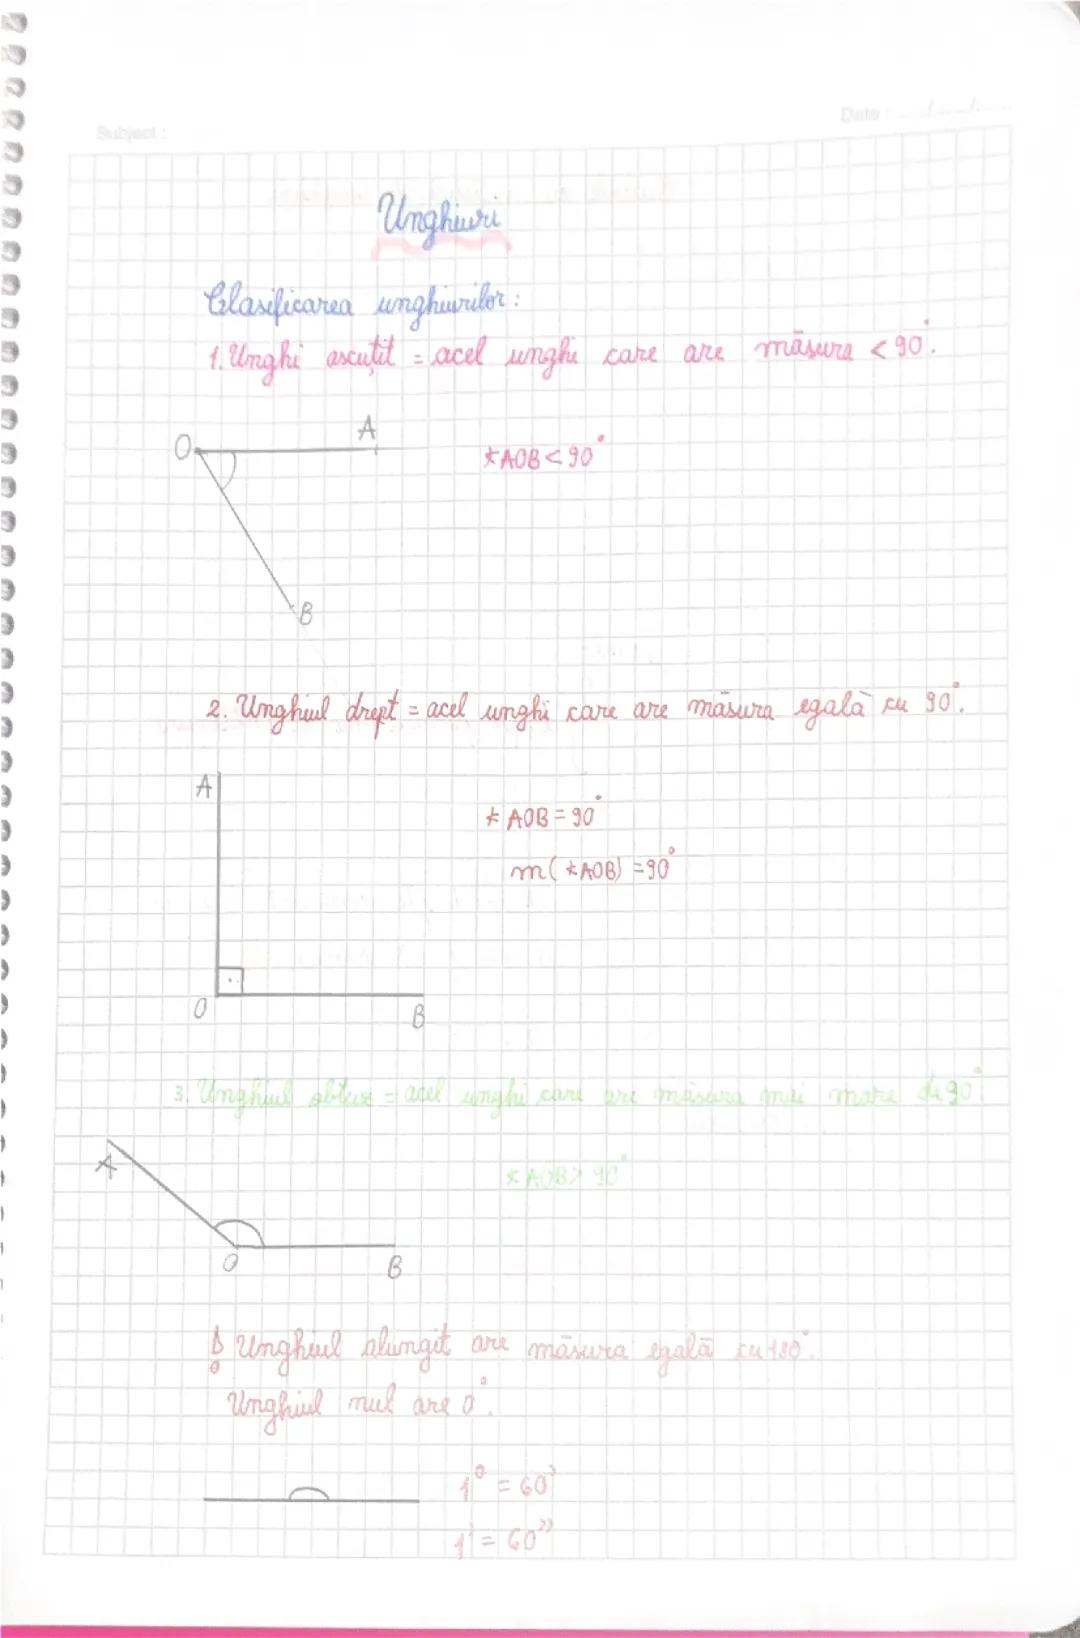 Date:
Subject:
Unghiuri
Clasificarea unghiurilor:
1. Unghi ascuțit = acel unghi care are măsura < 90°.
O A
∢AOB < 90°
B
2. Unghiul drept = acel unghi care are măsura egală cu 90°.
A
∢AOB = 90°
m(∢AOB) = 90°
O B
3. Unghiul obtuz = acel unghi care are măsura mai mare de 90°.
A
∢AOB > 90°
O B
Unghiul alungit are măsura egală cu 180°.
Unghiul nul are 0°.
1° = 60'
1' = 60''